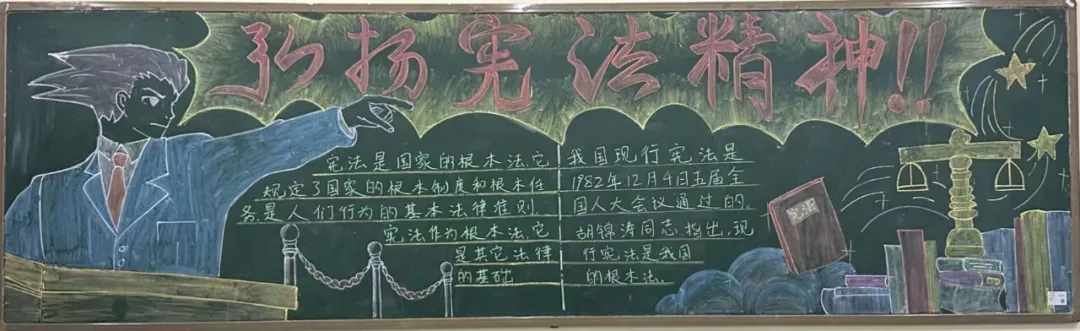 弘扬宪法精神!!
宪法是国家的根本法,它
规定了国家的根本制度和根本任
务是人们行为的基本法律准则
宪法作为根本法,它
是其它法律
的基础
我国现行宪法是
1982年12月4日五届全
国人大会议通过的。
胡锦涛同志指出,现
行宪法是我国
的根本法。
宪法